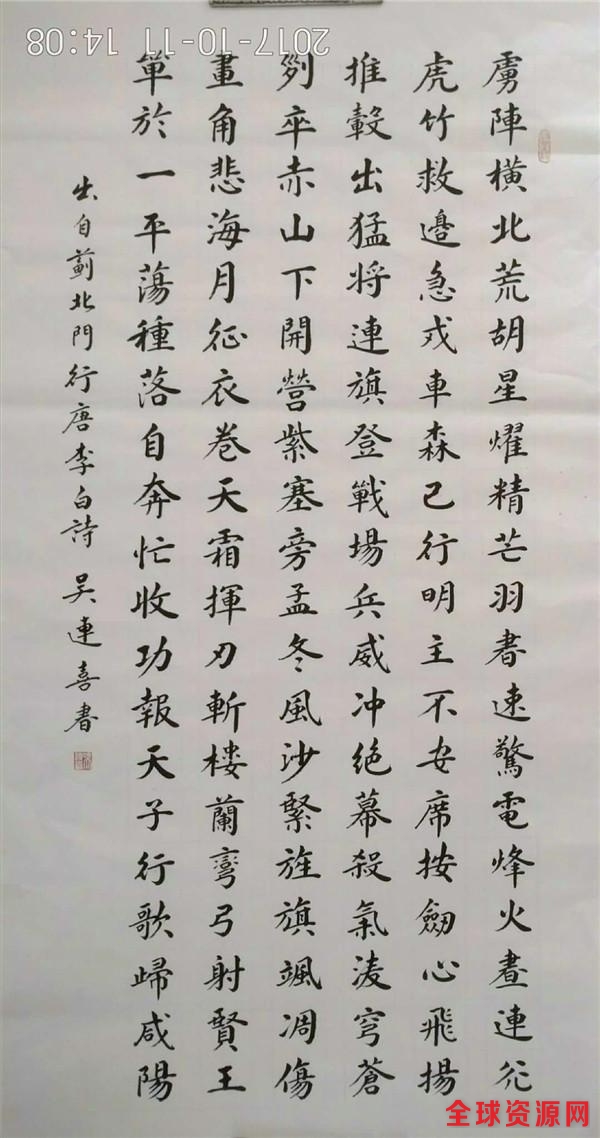 2017-10-11 14:08
虜陣橫北荒胡星耀精芒羽書速驚電烽火晝連光
虎竹救邉急戎車森已行明主不安席按劒心飛揚
推轂出猛将連旗登戰場兵威冲絶幕殺氣淩穹蒼
列卒赤山下開營紫塞旁孟冬風沙緊旌旗颯凋傷
畫角悲海月征衣卷天霜揮刃斬楼蘭彎弓射賢王
單於一平蕩種落自奔忙收功報天子行歌歸咸陽
出自薊北門行唐李白詩 吴連喜書
全球资源网